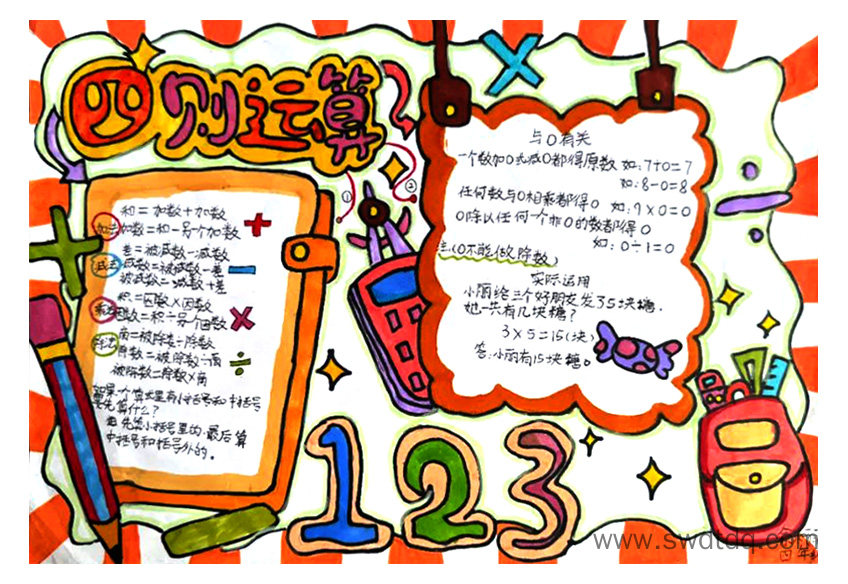 四则运算
和=加数+加数
加法
加数=和-另个加数
差=被减数-减数
减法
减数=被减数-差
被减数=减数+差
积=因数×因数
乘法
因数=积÷另个因数
商=被除数÷除数
除法
除数=被除数÷商
被除数=除数×商
如果一个算式里有小括号和中括号
要先算什么?
先算小括号里的,最后算
中括号和括号外的。
①
②
与0有关
一个数加0或减0都得原数 如:7+0=7
如:8-0=8
任何数与0相乘都得0 如:9×0=0
0除以任何一个非0的数都得0
如:0÷1=0
(0不能做除数)
实际运用
小丽给三个好朋友发35块糖.
她一共有几块糖?
3×5=15(块)
答:小丽有15块糖。
1 2 3
www.swdtdq.com